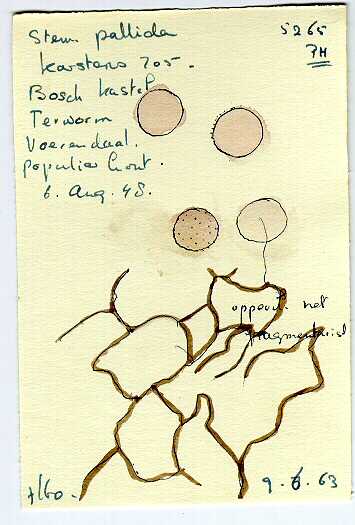 Stem. pallida
5265
PH
Karstens 705.
Bosch kastel
Terworm
Voerendaal.
populier hout.
6. Aug. 48.
oppervl. net
fragmentarist
9. 6. 63